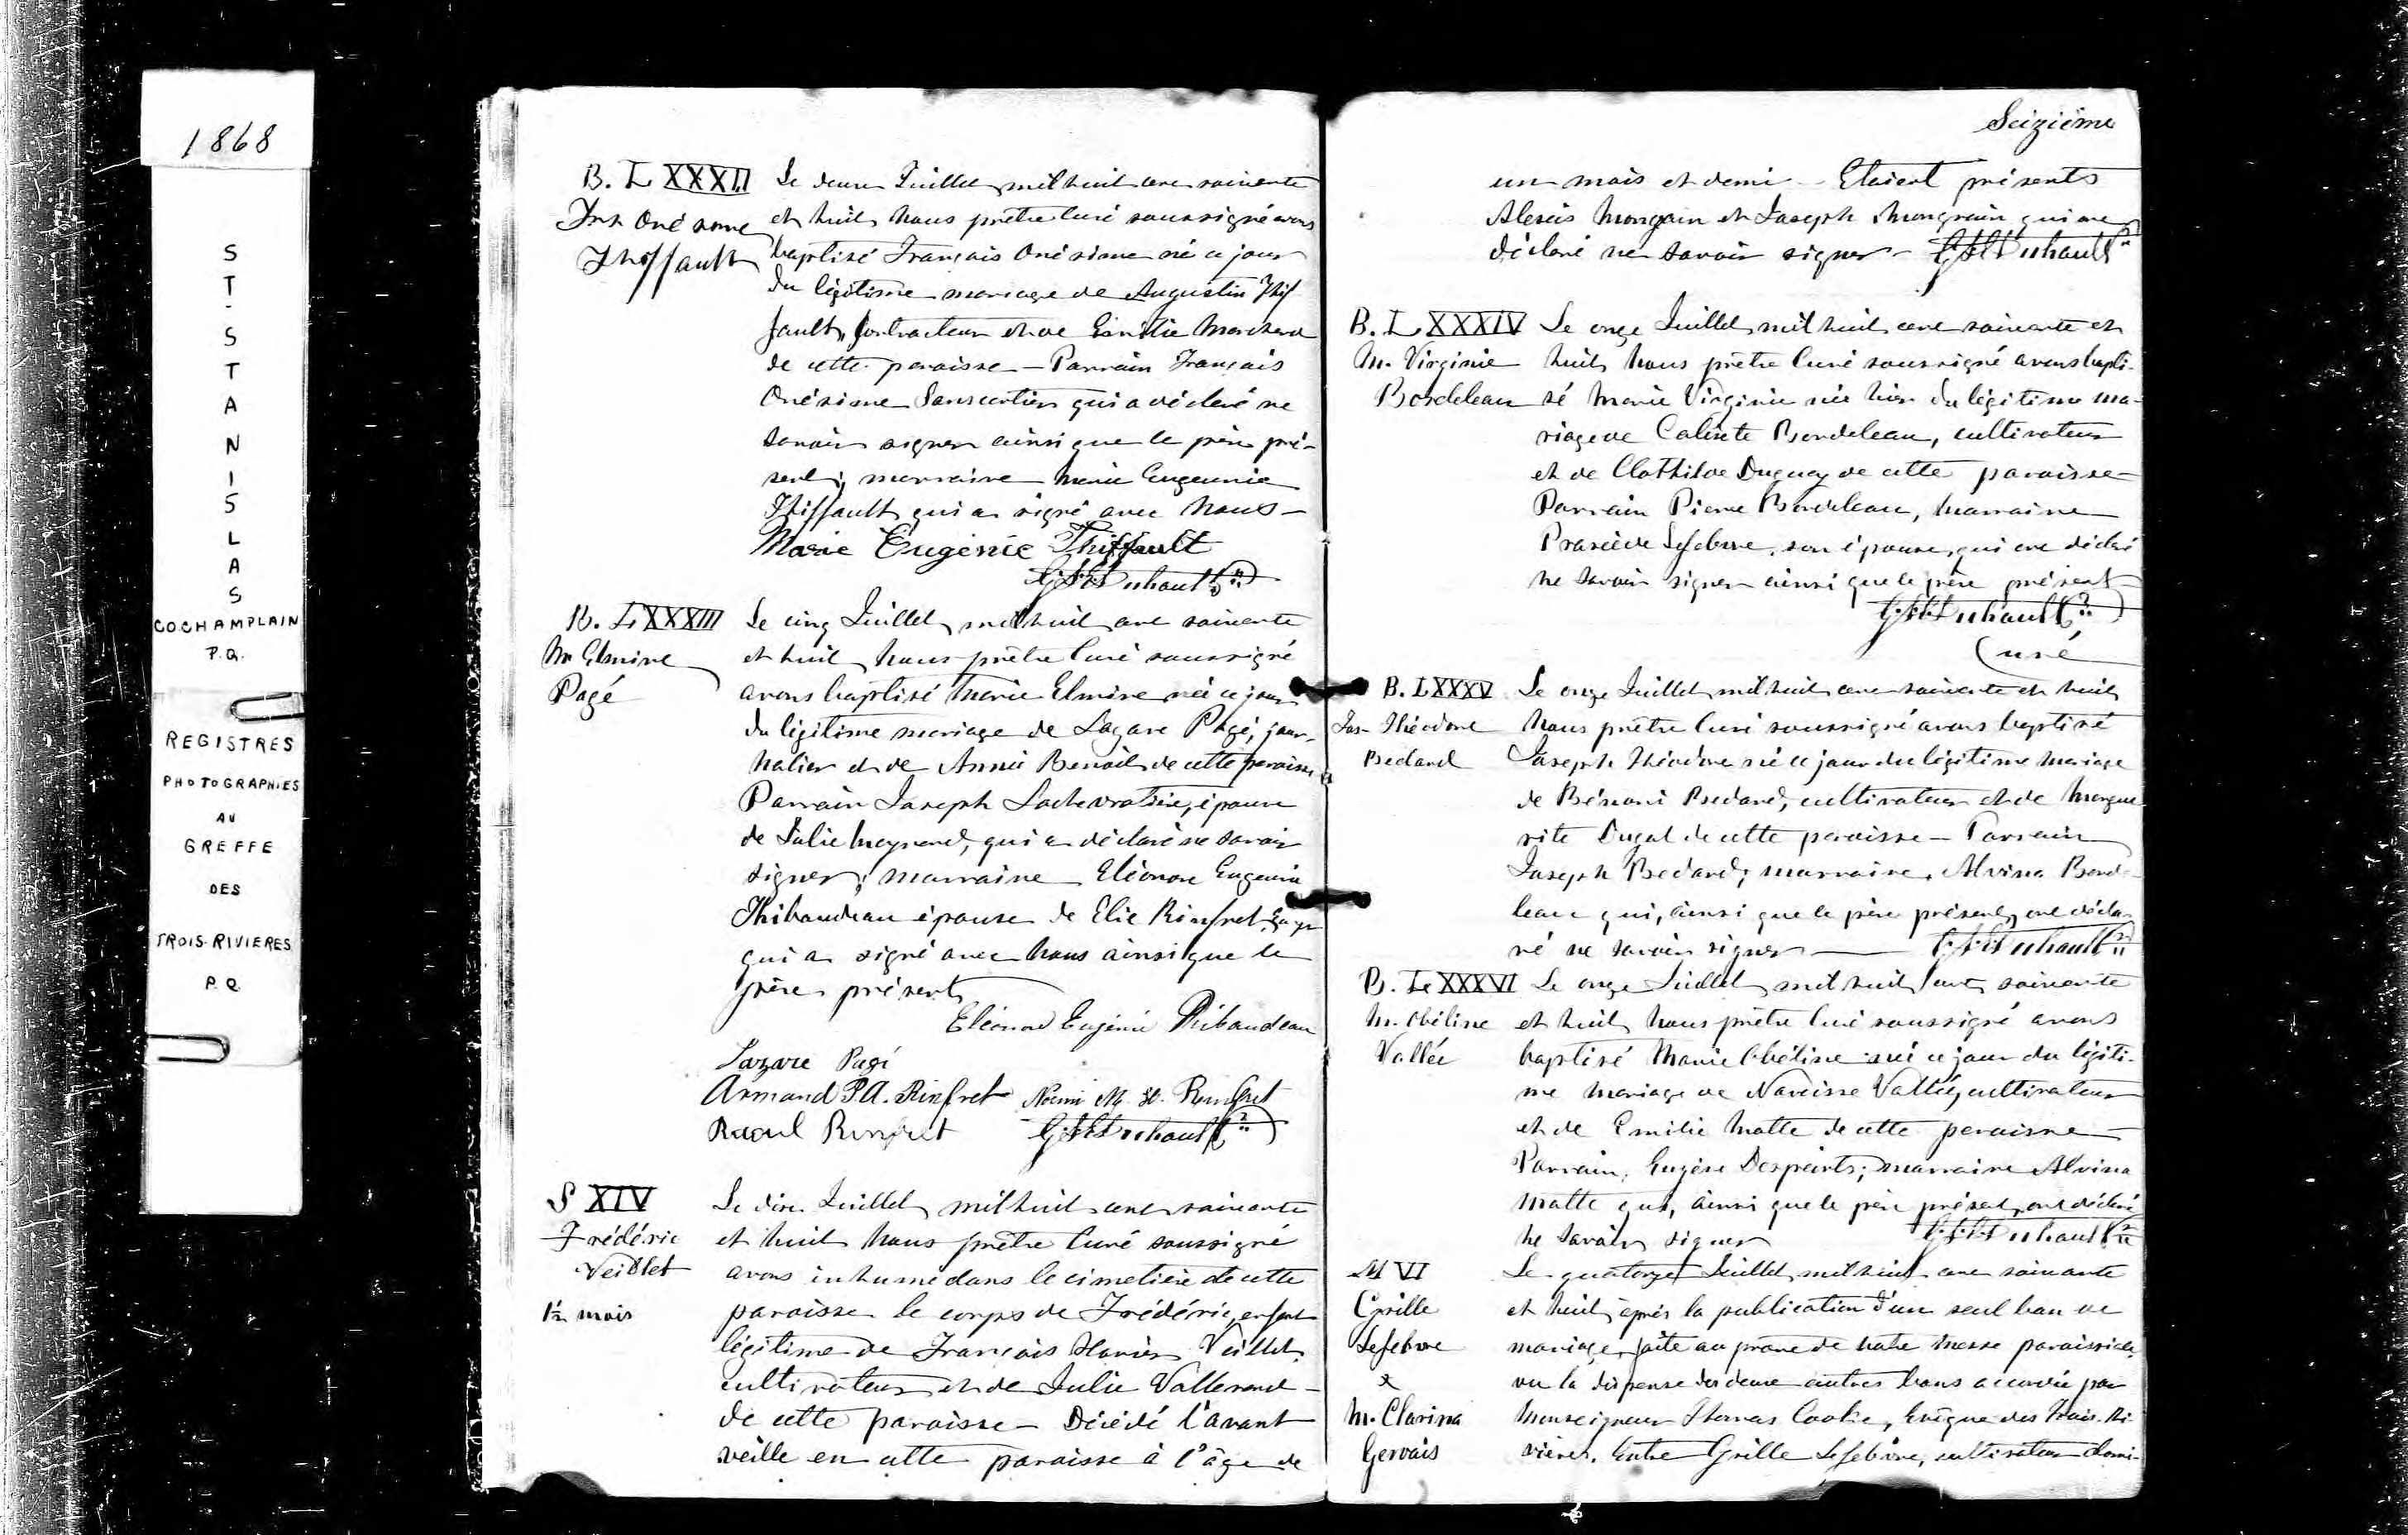 1868
S
T
-
S
T
A
N
I
S
L
A
S
CO CHAMPLAIN
P.Q.
REGISTRES
PHOTOGRAPHIES
AU
GREFFE
DES
TROIS-RIVIERES
P.Q.
B. LXXXII
Frs Onésime
Thiffault
Le deux Juillet mil huit cent soixante
et huit Nous prêtre Curé soussigné avons
baptisé François Onésime né ce jour
du légitime mariage de Augustin Thif
fault, Contracteur et de Emilie Marchand
de cette paroisse – Parrain François
Onésime Sanscartier qui a déclaré ne
savoir signer ainsi que le père pré-
sent; marraine Marie Eugeunie
Thiffault qui a signé avec Nous –
Marie Eugénie Thiffault
B. LXXXIII
M Elmire
Pagé
Le cinq Juillet mil huit cent soixante
et huit Nous prêtre Curé soussigné
avons baptisé Marie Elmire née ce jour
du légitime mariage de Lazare Pagé, jour-
nalier et de Annie Benoit de cette paroisse
Parrain Joseph époux
de Julie qui a déclaré ne savoir
signer; marraine Eléonore Eugénie
Thibaudeau épouse de Elie Rinfret
qui a signé avec Nous ainsi que le
père présent
Eléonore Eugénie Thibaudeau
Lazare Pagé
Armand P.A. Rinfret Noémi M. Rinfret
Raoul Rinfret
S XIV
Frédéric
Veillet
1½ mois
Le dix Juillet mil huit cent soixante
et huit Nous prêtre Curé soussigné
avons inhumé dans le cimetière de cette
paroisse le corps de Frédéric, enfant
légitime de François Xavier Veillet,
cultivateur et de Julie Vallerand –
de cette paroisse – Décédé l'avant
veille en cette paroisse à l'âge de
Seizième
un mois et demi – Etaient présents
Alexis Mongrain et Joseph Mongrain qui ont
déclaré ne savoir signer –
B. LXXXIV
M. Virginie
Bordeleau
Le onze Juillet mil huit cent soixante et
huit Nous prêtre Curé soussigné avons bapti-
sé Marie Virginie née hier du légitime ma-
riage de Calixte Bordeleau, cultivateur
et de Clothilde Duguay de cette paroisse –
Parrain Pierre Bordeleau, marraine
Praxède Lefebvre, son épouse, qui ont déclaré
ne savoir signer ainsi que le père présent
Curé
B. LXXXV
Jos- Théodore
Bedard
Le onze Juillet mil huit cent soixante et huit
Nous prêtre Curé soussigné avons baptisé
Joseph Théodore né ce jour du légitime mariage
de Bénoni Bedard, cultivateur et de Margue
rite Dugal de cette paroisse – Parrain
Joseph Bedard; marraine, Alvina Borde-
leau qui, ainsi que le père présent, ont décla-
ré ne savoir signer –
B. LXXXVI
M. Obéline
Vallée
Le onze Juillet mil huit cent soixante
et huit Nous prêtre Curé soussigné avons
baptisé Marie Obéline née ce jour du légiti-
me mariage de Narcisse Vallée, cultivateur
et de Emilie Matte de cette paroisse –
Parrain, Eugène Despeints; marraine Alvina
Matte qui, ainsi que le père présent, ont déclaré
ne savoir signer
M VI
Cyrille
Lefebvre
&
M. Clarina
Gervais
Le quatorze Juillet mil huit cent soixante
et huit, après la publication d'un seul ban de
mariage, faite au prône de notre messe paroissiale,
vu la dispense des deux autres bans accordée par
Monseigneur Thomas Cooke, Evêque des Trois-Ri
vières, Entre Cyrille Lefebvre, cultivateur domi-